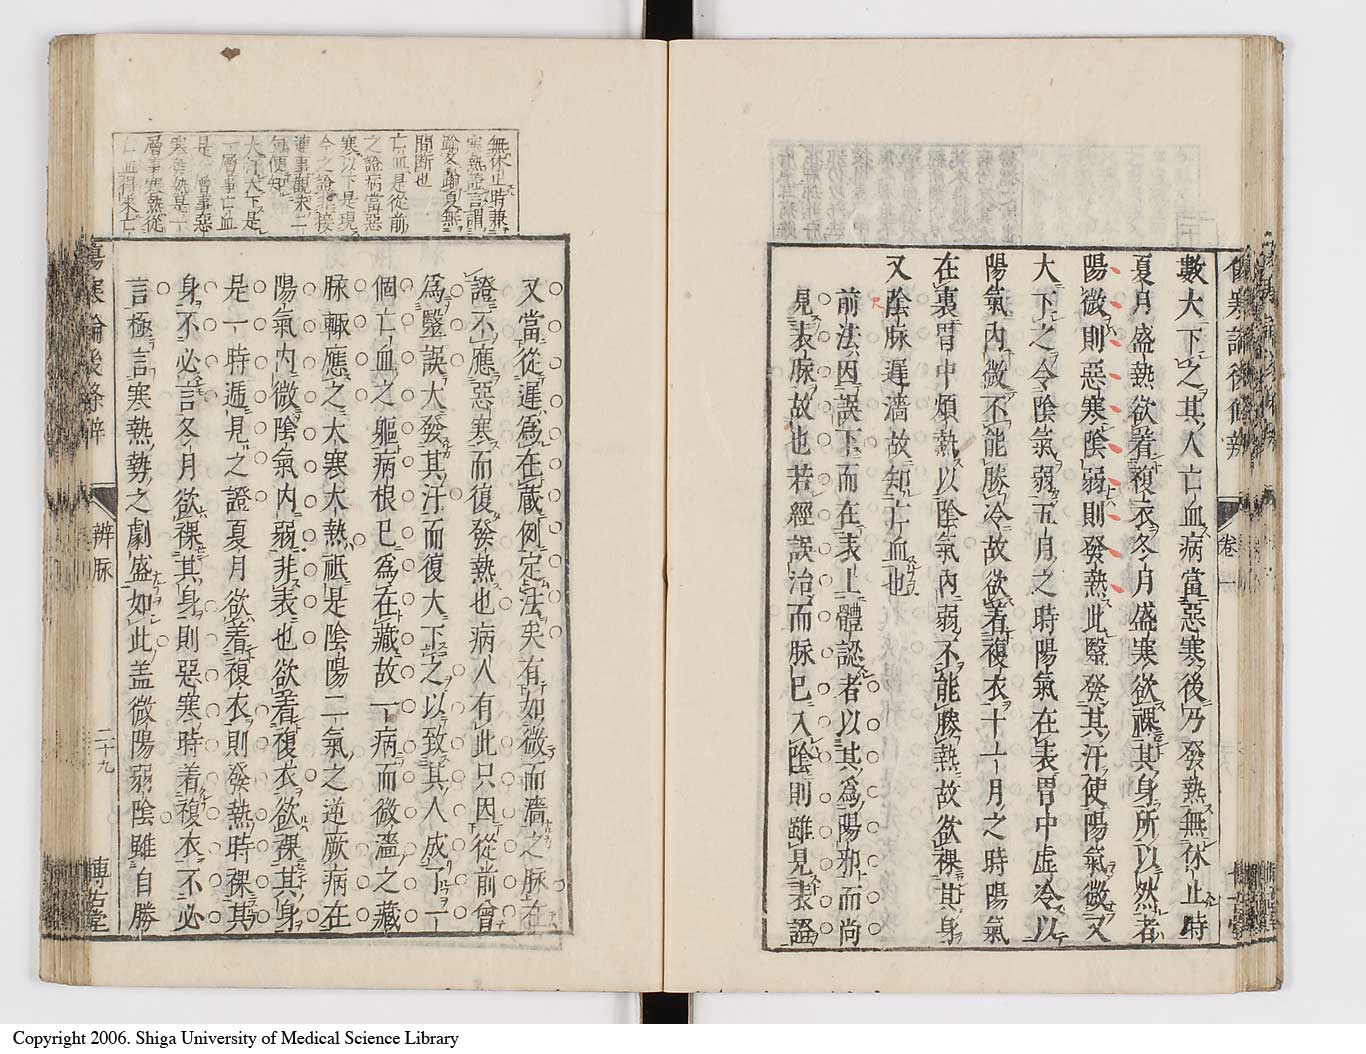 數大下之其人亡血病當惡寒後乃發熱無休止時
夏月盛熱欲着複衣冬月盛寒欲裸其身所以然者
陽微則惡寒陰弱則發熱此醫發其汗使陽氣微又
大下之令陰氣弱五月之時陽氣在表胃中虛冷以
陽氣內微不能勝冷故欲着複衣十一月之時陽氣
在裏胃中煩熱以陰氣內弱不能勝熱故欲裸其身
又陰脉遲濇故知亡血也
前法因誤下而在表上體認者以其爲陽邪而尚
見表脉故也若經誤治而脉已入陰則雖見表證
卷一
無休止時兼
寒熱證言謂
踰冬踰夏無
間断也
亡血是從前
之證病當惡
寒以下是現
今之證非接
連事觀末二
氣便知
大汗大下是
一層事亡血
是一層事惡
寒發熱是一
層事寒熱從
亡血得來亡
又當從遲爲在藏例定法矣有如微而濇之脉在
證不應惡寒而復發熱也病人有此只因從前曾
爲醫誤大發其汗而復大下之以致其人成了一
個亡血之軀病根已爲在藏故一病而微濇之藏
脉輙應之大寒大熱祇是陰陽二氣之逆厥病在
陽氣內微陰氣內弱非表也欲着複衣欲裸其身
是一時遞見之證夏月欲着複衣則發熱時裸其
身不必言冬月欲裸其身則惡寒時着複衣不必
言極言寒熱勢之劇盛如此盖微陽弱陰雖自勝
傷寒論後條辨
辨脉
二十九
博古堂
Copyright 2006. Shiga University of Medical Science Library